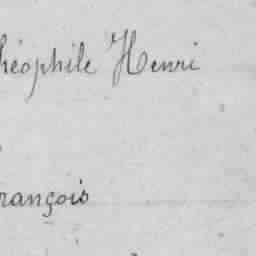 héophile Henri
rançois